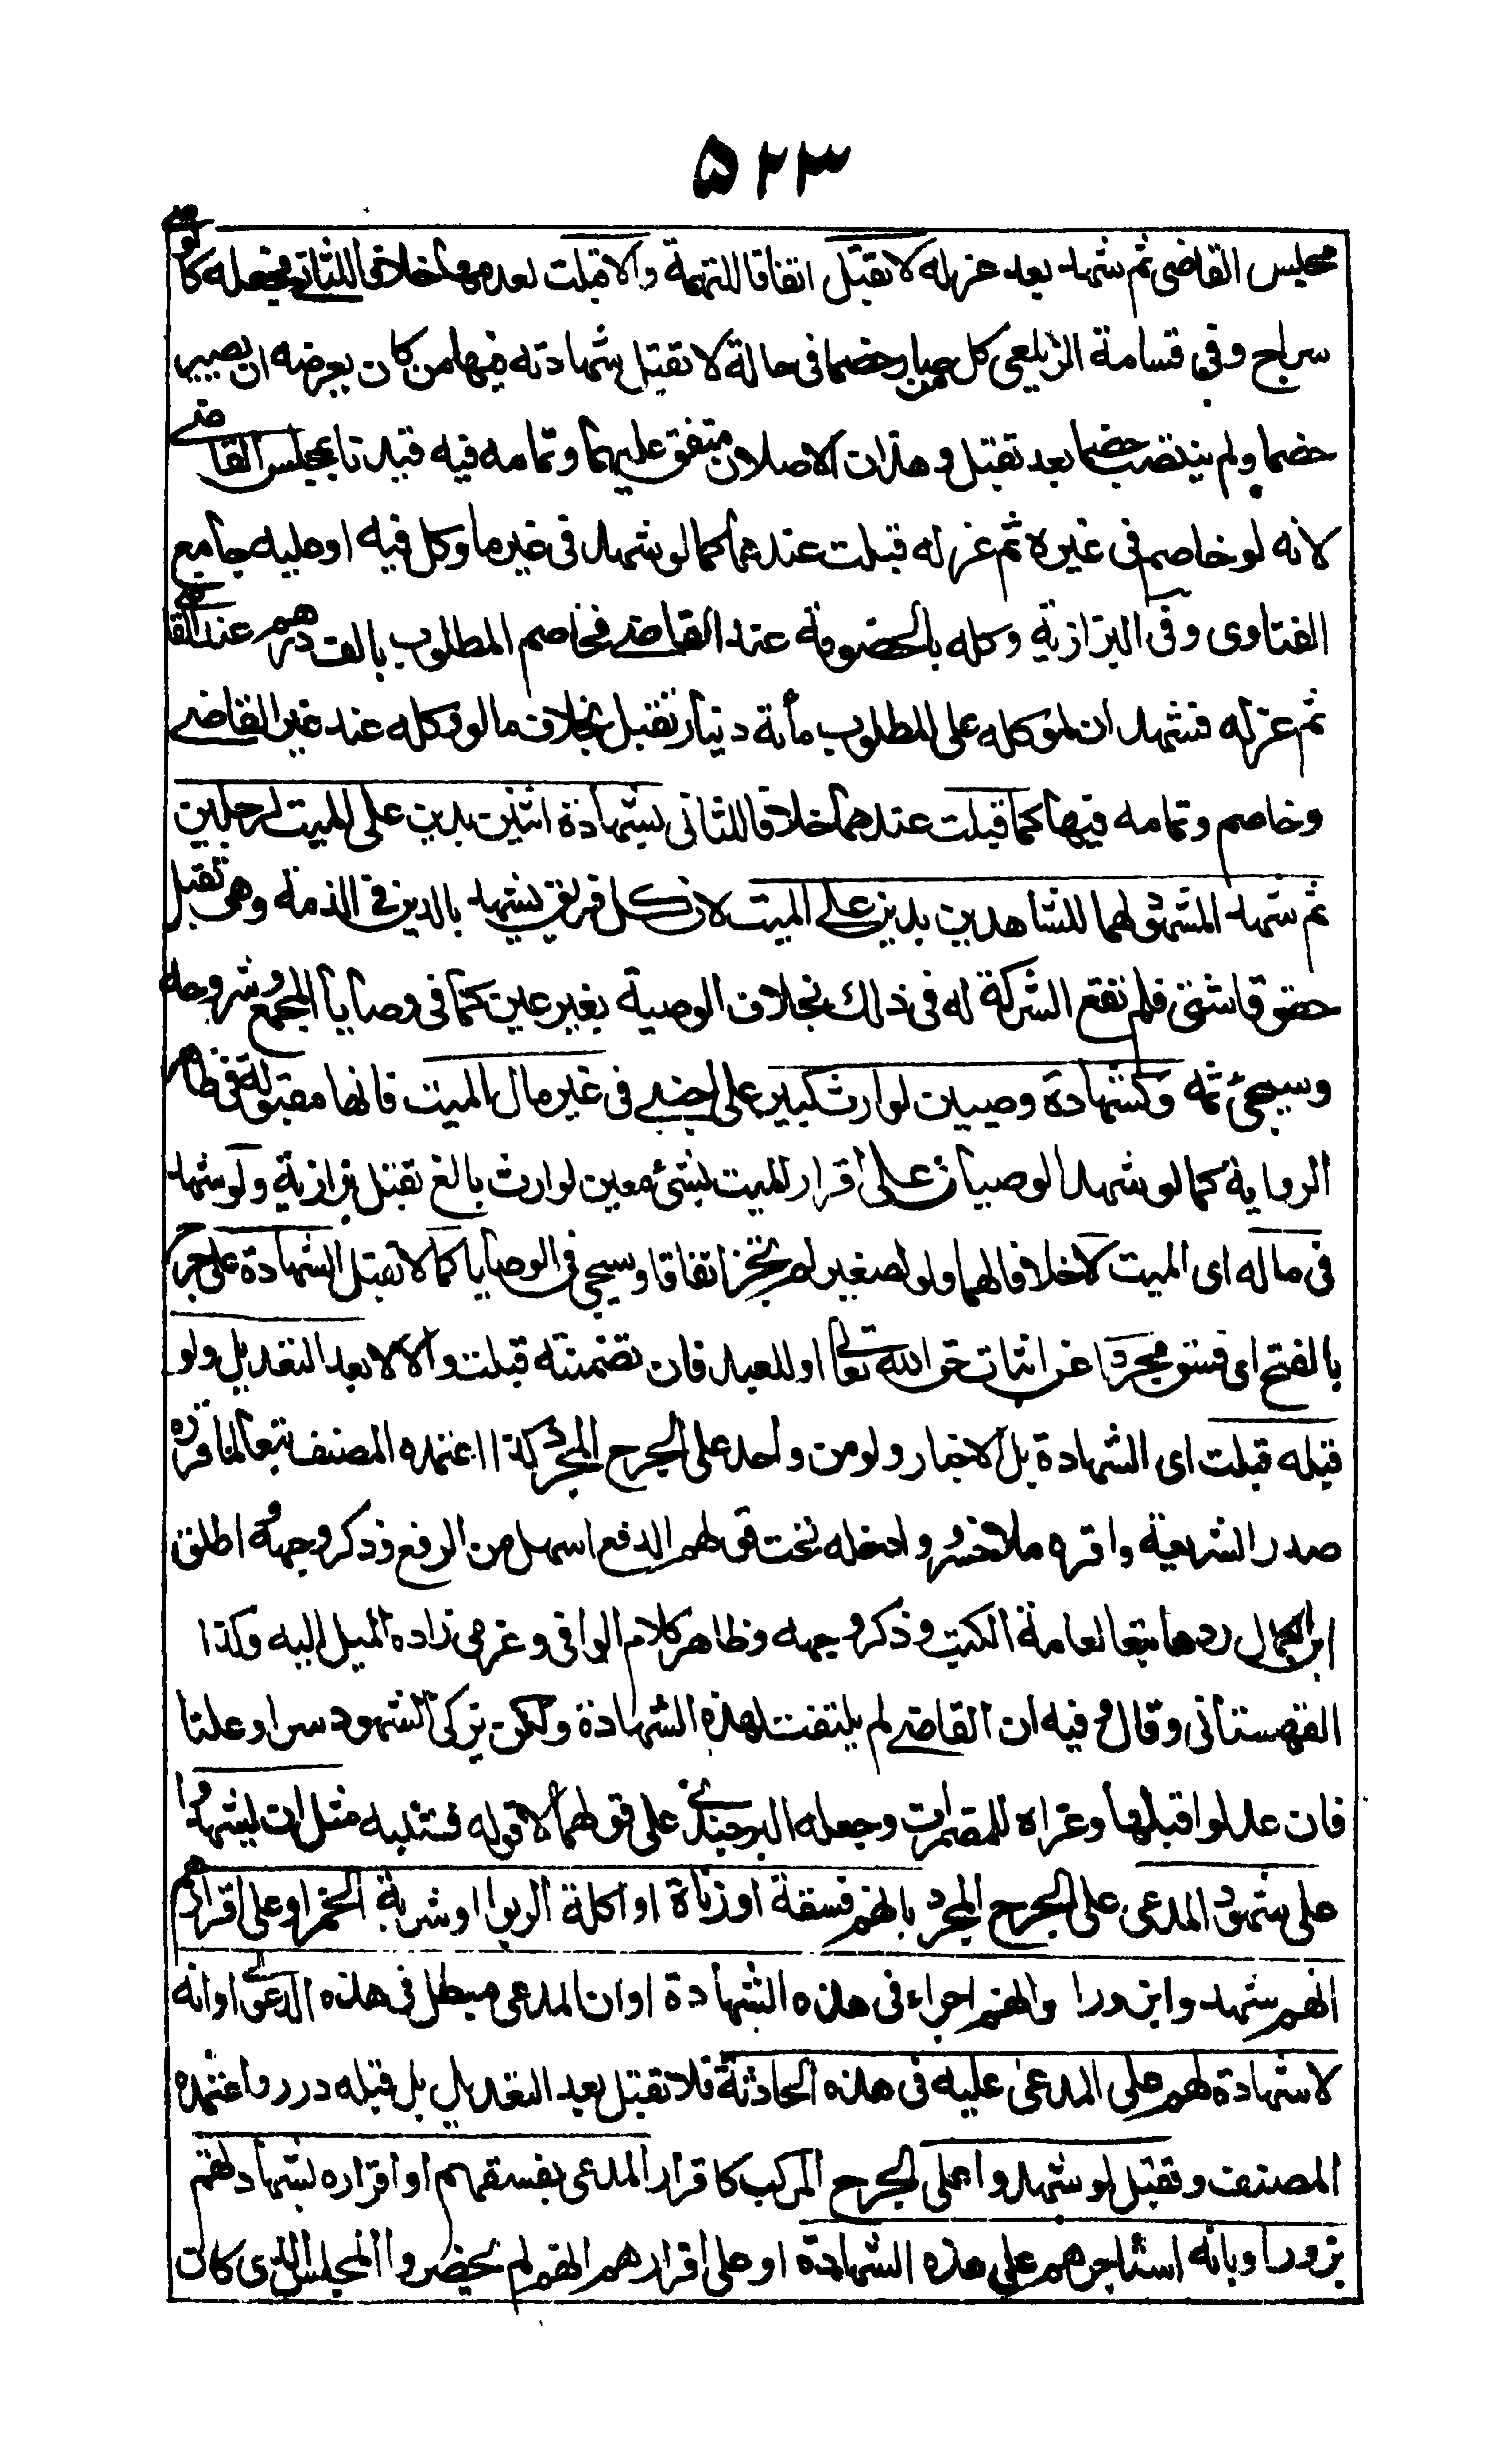 ۵۲۳
مجلس القاضى ثم شهد بعد عزله لا تقبل اتفاقا للتهمة والا قبلت لعدمها خلافا للثانى فجعله كالوصى
سراج وفى قسامة الزيلعى كل من صار خصما فى حالة لا تقبل شهادته فيها من كان بعرضه ان يصير
خصما ولم ينتصب خصما بعد تقبل وهذان الاصلان متفق عليهما وتمامه فيه قيدنا بمجلس القاضى
لانه لو خاصم فى غيره ثم عزله قبلت عندهما كما لو شهد فى غير ما وكل فيه او عليه جامع
الفتاوى وفى البزازية وكله بالخصومة عند القاضى فخاصم المطلوب بالف درهم عند القاضى
ثم عزله فشهد ان لموكله على المطلوب مأنة دينار تقبل بخلاف ما لو وكله عند غير القاضى
وخاصم وتمامه فيها كما قبلت عندهما خلافا للثانى شهادة اثنين بدين على الميت لرجلين
ثم شهد المشهود لهما للشاهدين بدين على الميت لان كل فريق يشهد بالدين فى الذمة وهى تقبل
حقوقا شتى فلم تقع الشركة له فى ذلك بخلاف الوصية بغير عين كما فى وصايا المجمع وشروحه
وسيجئ ثمه وكشهادة وصيين لوارث كبير على اجنبى فى غير مال الميت فانها مقبولة فى ظاهر
الرواية كما لو شهد الوصيان على اقرار الميت بشئ معين لوارث بالغ تقبل بزازية ولو شهد
فى ماله اى الميت لا خلافا لهما ولو لصغير لم تجز اتفاقا وسيجى فى الوصايا كما لا تقبل الشهادة على جرح
بالفتح اى فسق مجرد عن اثبات حق الله تعالى او للعبد فان تضمنته قبلت والا لا بعد التعديل ولو
قبله قبلت اى الشهادة بل الاخبار ولو من واحد على الجرح المجرد كذا اعتمده المصنف تبعا لما قرره
صدر الشريعة واقره ملا خسرو وادخله تحت قولهم الدفع اسهل من الرفع وذكر وجهه واطلق
ابن الكمال ردها تبعا لعامة الكتب وذكر وجهه وظاهر كلام الوافى وعزمى زاده الميل اليه وكذا
القهستانى وقال وفيه ان القاضى لم يلتفت لهذه الشهادة ولكن يزكى الشهود سرا وعلنا
فان عدلوا قبلها وعزاه للمضمرات وجعله البرجندى على قولهما لا قوله فتنبه مثل ان يشهدوا
على شهود المدعى على الجرح المجرد بانهم فسقة او زناة او اكلة الربوا او شربة الخمر او على اقرارهم
انهم شهدوا بزورا وانهم اجراء فى هذه الشهادة او ان المدعى مبطل فى هذه الدعوى او انه
لا شهادة لهم على المدعى عليه فى هذه الحادثة فلا تقبل بعد التعديل بل قبله درر واعتمده
المصنف وتقبل لو شهدوا على الجرح المركب كاقرار المدعى بفسقهم او اقراره بشهادتهم
بزور او بانه استاجرهم على هذه الشهادة او على اقرارهم انهم لم يحضروا المجلس الذى كان